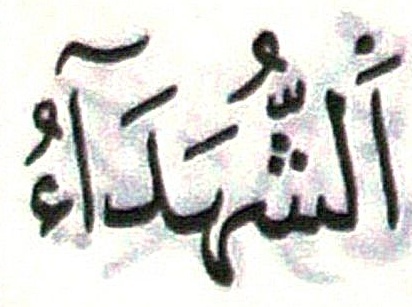 اَلشُّهَدَآءُ